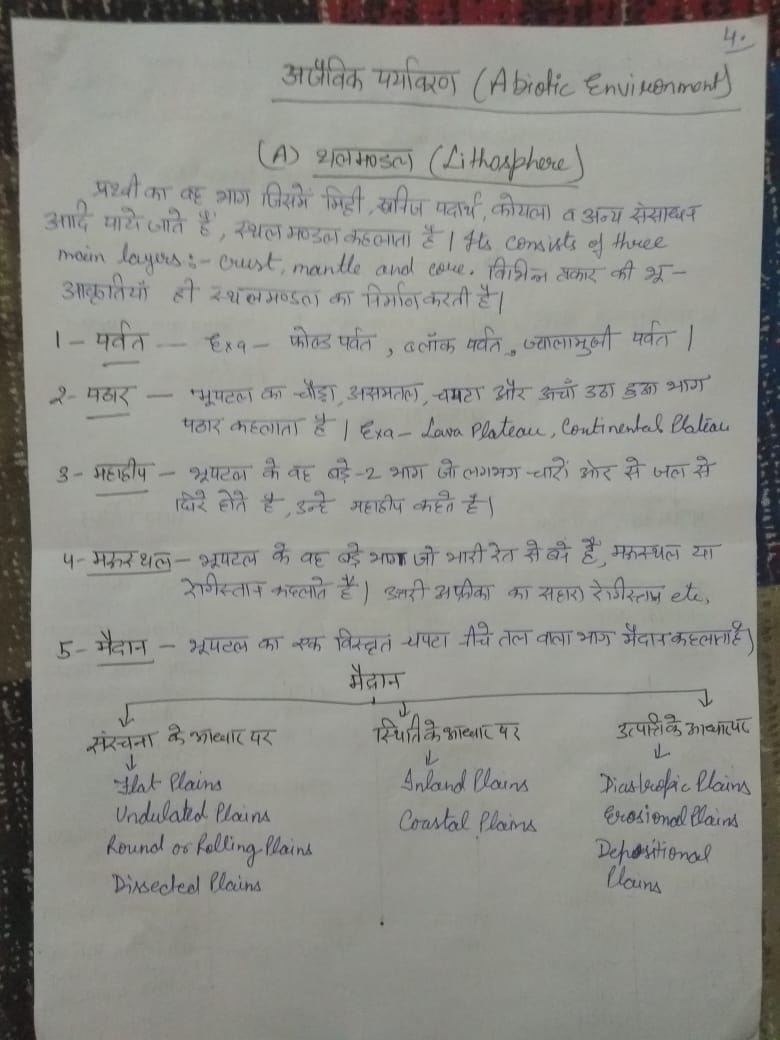 4.
अजैविक पर्यावरण (Abiotic Environment)
(A) थलमण्डल (Lithosphere)
प्रथ्वी का वह भाग जिसमें मिट्टी, खनिज पदार्थ, कोयला व अन्य संसाधन
आदि पाये जाते हैं, स्थलमण्डल कहलाता है। Its consists of three
main layers:- crust, mantle and core. विभिन्न प्रकार की भू-
आकृतियाँ ही स्थलमण्डल का निर्माण करती है।
1- पर्वत — Exa - फोल्ड पर्वत, ब्लॉक पर्वत, ज्वालामुखी पर्वत।
2- पठार — भूपटल का चौड़ा, असमतल, चपटा और ऊचाँ उठा हुआ भाग
पठार कहलाता है। Exa- Lava Plateau, Continental Plateau
3- महाद्वीप - भूपटल के वह बड़े-2 भाग जो लगभग चारों ओर से जल से
घिरे होते है, उन्हे महाद्वीप कहते है।
4- मरुस्थल - भूपटल के वह बड़े भाग जो भारी रेत से बने हैं, मरुस्थल या
रेगीस्तान कहलाते है। उत्तरी अफ्रीका का सहारा रेगीस्तान etc.
5- मैदान - भूपटल का एक विस्तृत चपटा नीचे तल वाला भाग मैदान कहलाता है।
मैदान
संरचना के आधार पर स्थिति के आधार पर उत्पत्ति के आधार पर
Flat Plains Inland Plains Diastropic Plains
Undulated Plains Coastal Plains Erosional Plains
Round or Rolling Plains Depositional
Dissected Plains Plains